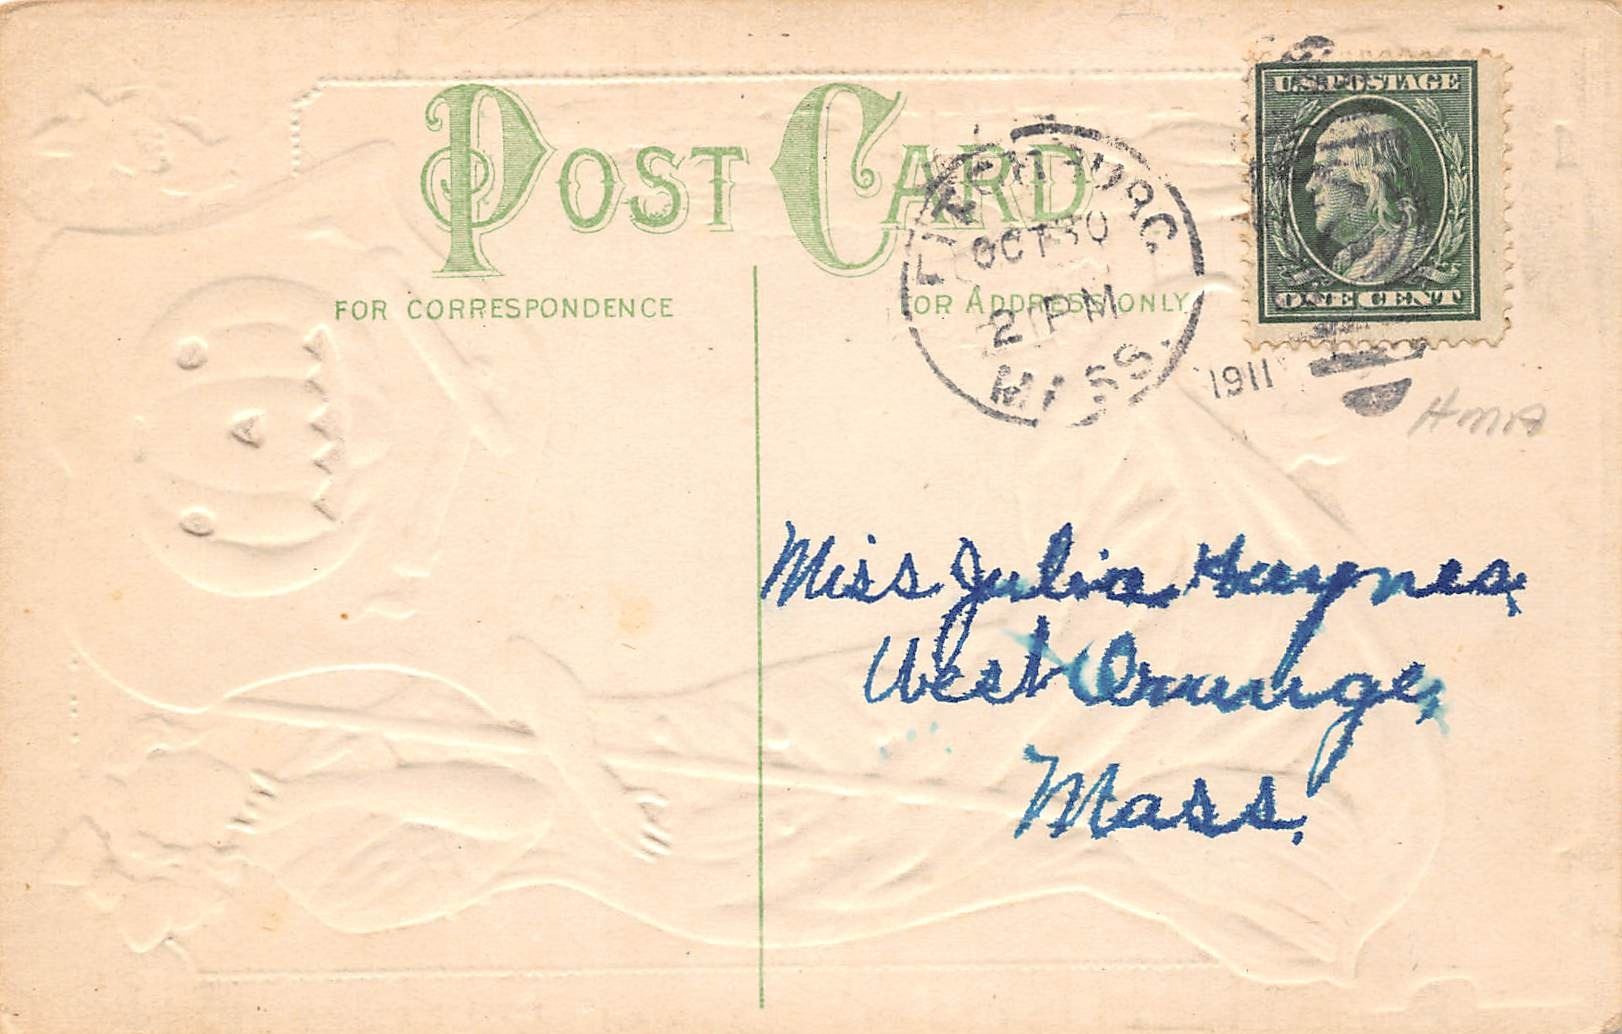 U.S. POSTAGE
POST CARD
FITCHBURG
OCT 30
FOR CORRESPONDENCE
FOR ADDRESS ONLY
ONE CENT
2 PM
MASS.
1911
Miss Julia Haynes,
West Orange,
Mass.